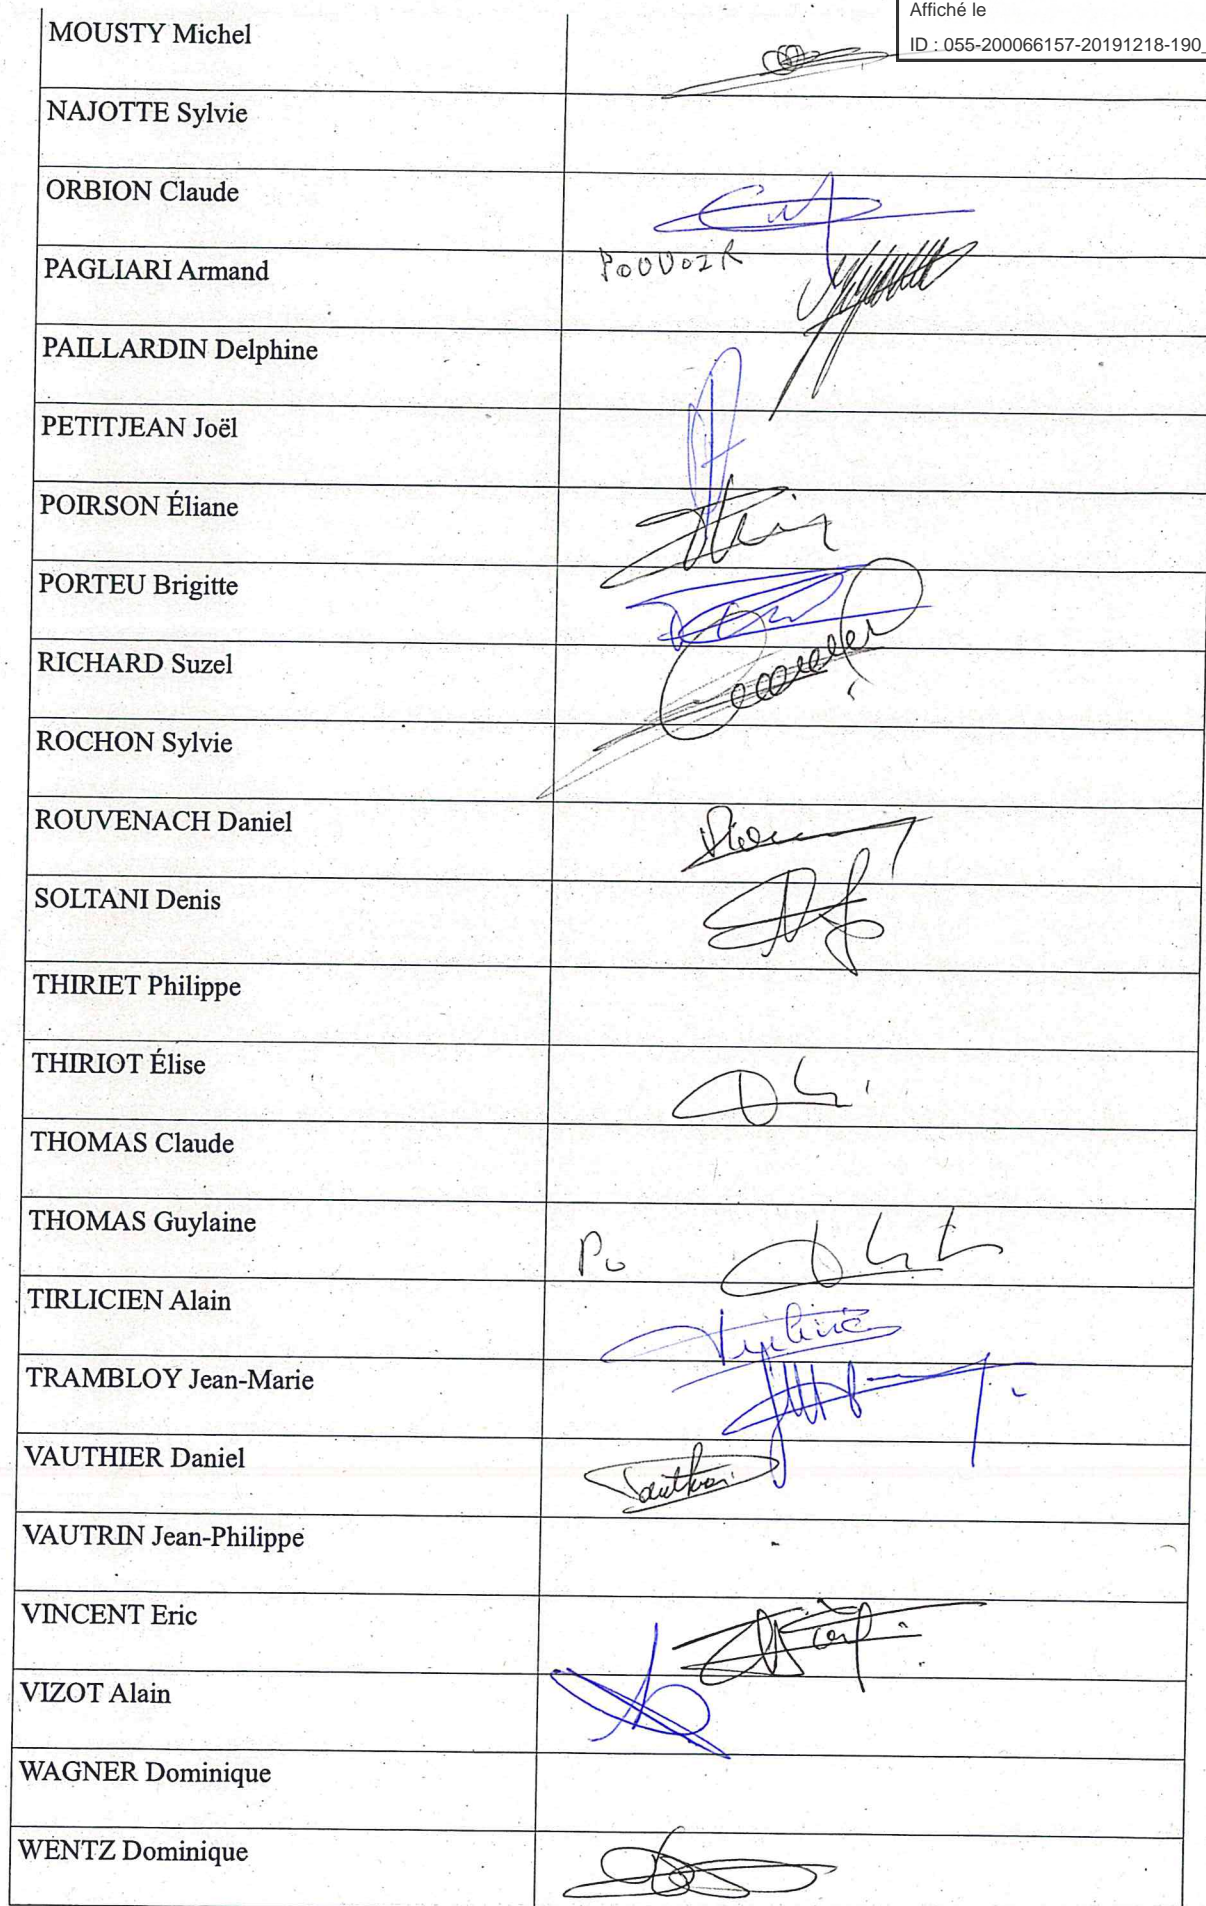 Affiché le
ID : 055-200066157-20191218-190_
MOUSTY Michel
NAJOTTE Sylvie
ORBION Claude
PAGLIARI Armand
POUVOIR
PAILLARDIN Delphine
PETITJEAN Joël
POIRSON Éliane
PORTEU Brigitte
RICHARD Suzel
ROCHON Sylvie
ROUVENACH Daniel
SOLTANI Denis
THIRIET Philippe
THIRIOT Élise
THOMAS Claude
THOMAS Guylaine
TIRLICIEN Alain
TRAMBLOY Jean-Marie
VAUTHIER Daniel
VAUTRIN Jean-Philippe
VINCENT Eric
VIZOT Alain
WAGNER Dominique
WENTZ Dominique